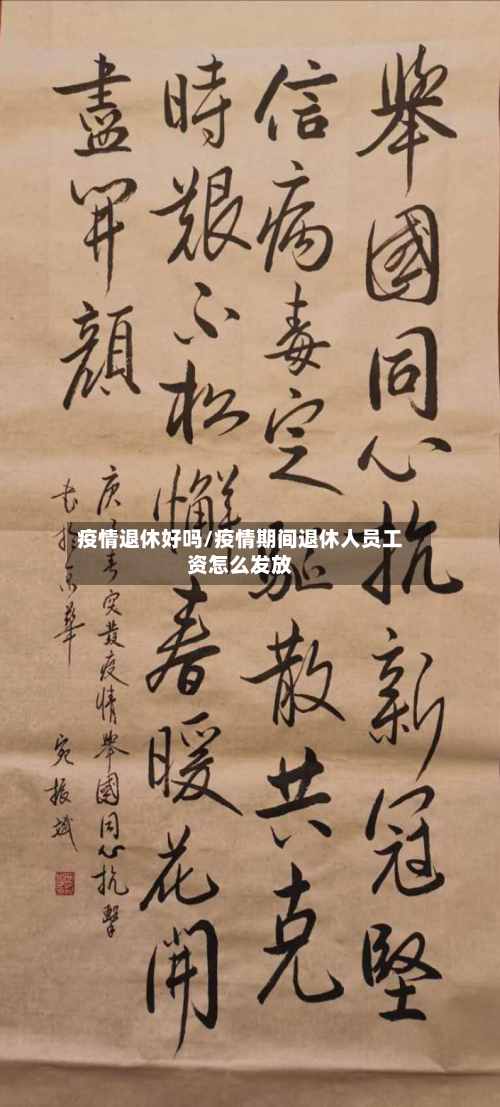 舉國同心抗新冠堅
信病毒定驅散共克
時艱不松懈春暖花開
盡開顔
庚子春突發疫情舉國同心抗擊
書於京華
宛振斌
疫情退休好吗/疫情期间退休人员工
资怎么发放